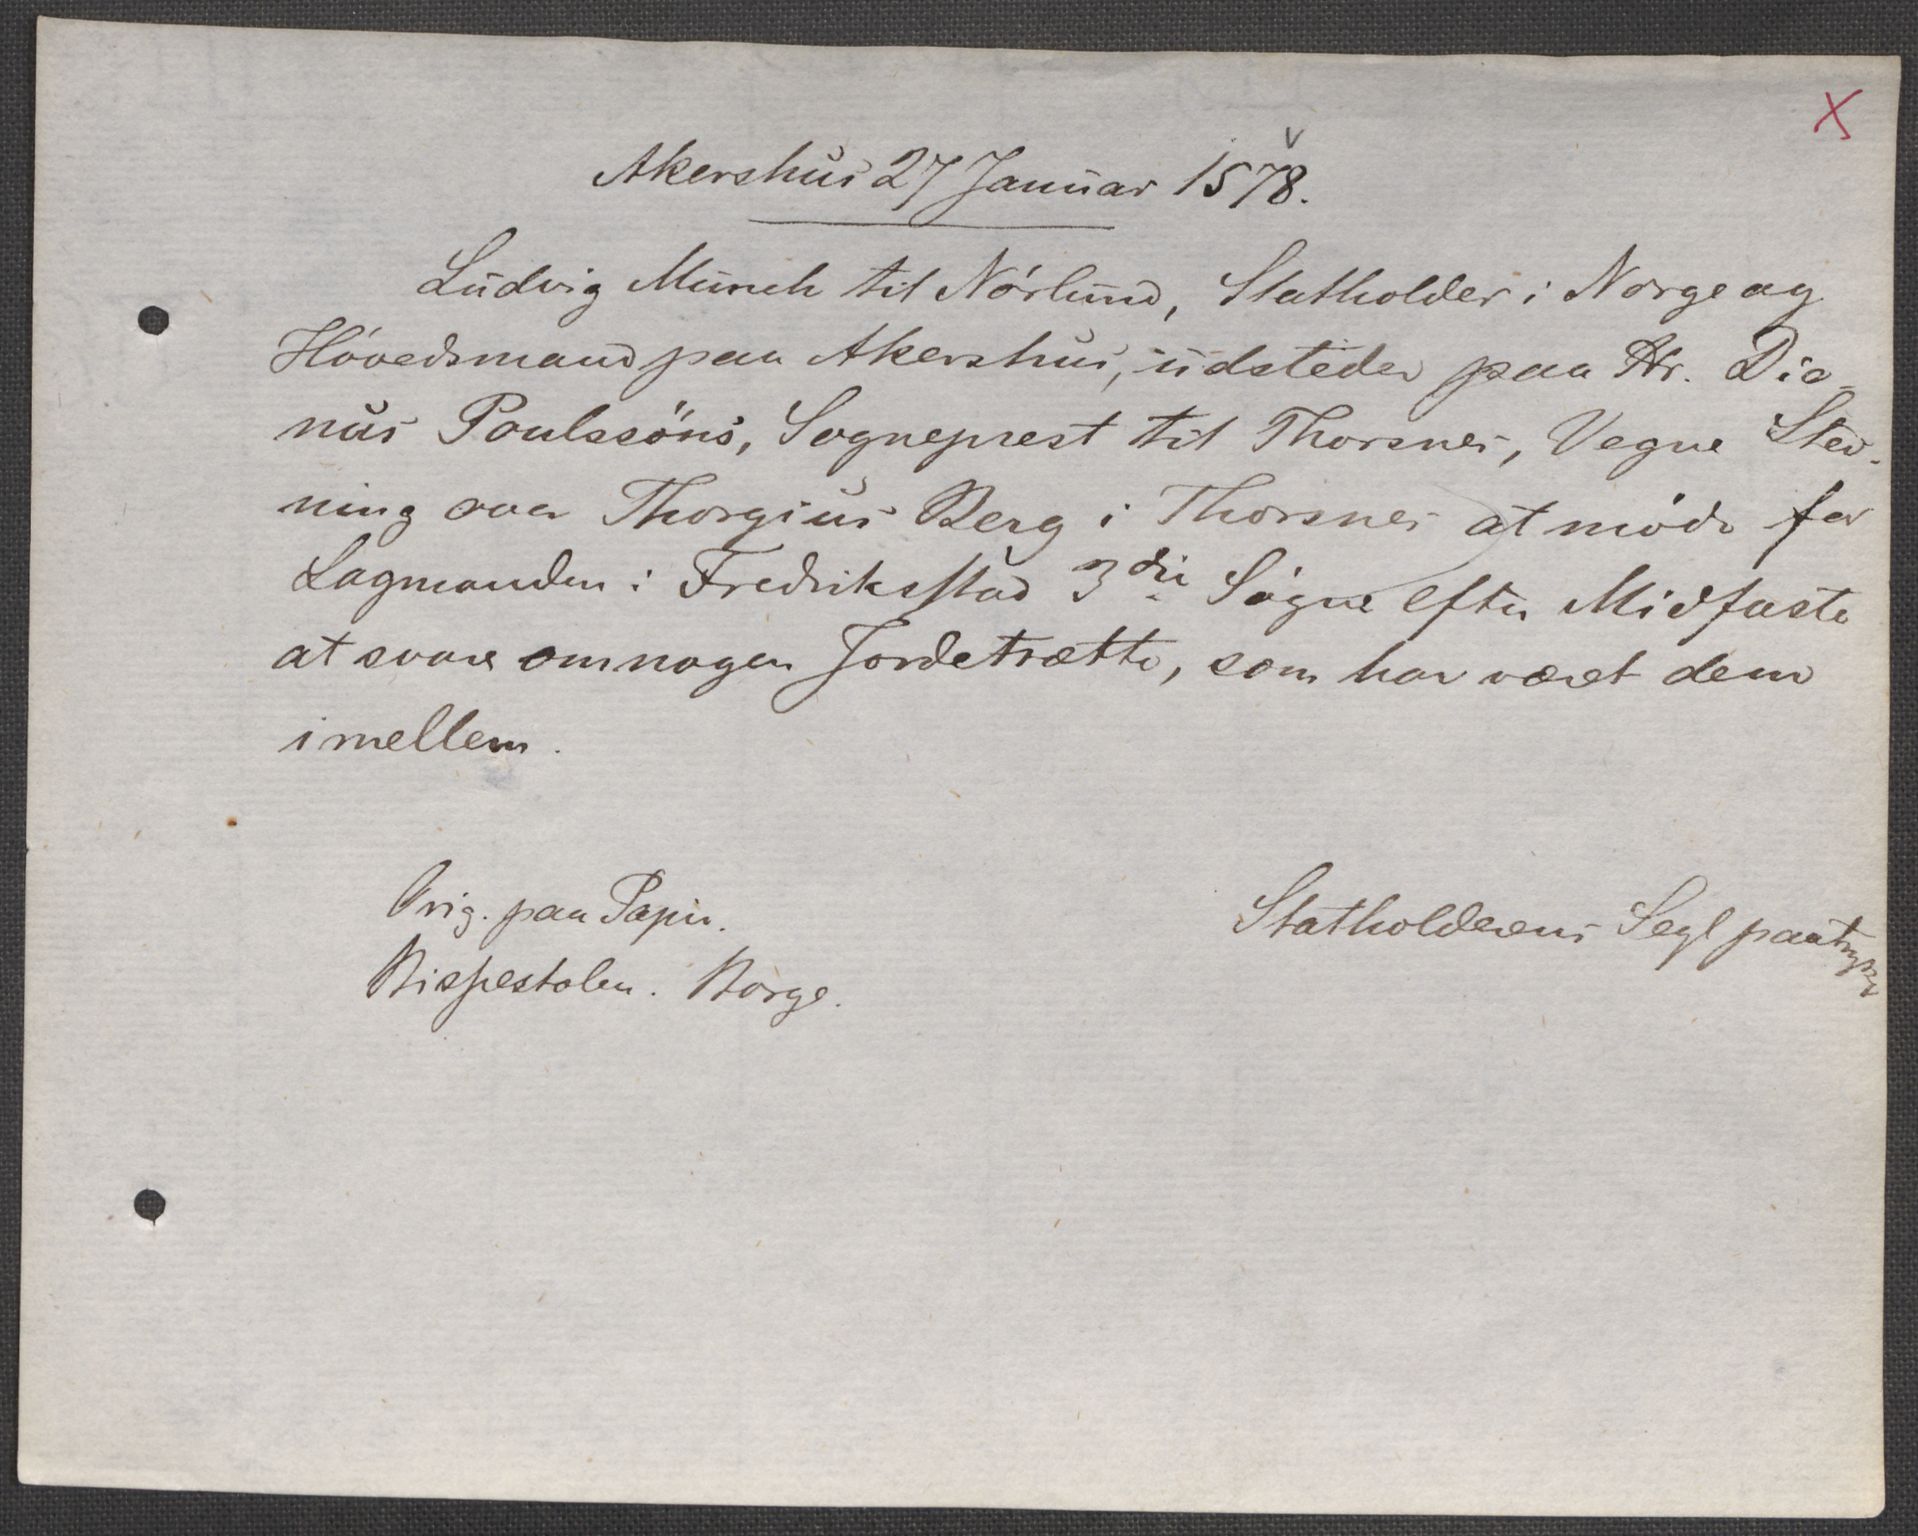 X
Akershus 27 Januar 1578.
Ludvig Munch til Nörlund, Statholder i Norge og
Hövedsmand paa Akershus, udsteder paa Hr. Dio-
nus Poulssöns, Sogneprest til Thorsnes, Vegne Stev-
ning over Thorgius Berg i Thorsnes at möde for
Lagmanden i Fredriksstad 3die Sögne efter Midfaste
at svare om nogen Jordetrætte, som har været dem
imellem.
Orig. paa Papir.
Statholderens Segl paatrykt
Bispestolen. Borge.